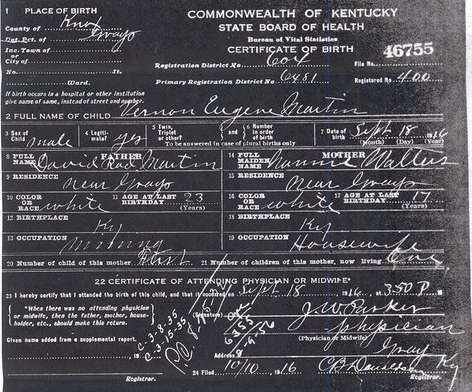 1 PLACE OF BIRTH
COMMONWEALTH OF KENTUCKY
STATE BOARD OF HEALTH
Bureau of Vital Statistics
CERTIFICATE OF BIRTH
County of Knox
Vot. Pct. of Grays
Inc. Town of
or
City of
No. St.
Ward.
Registration District No. 604
File No. 46755
Primary Registration District No. 6481
Registered No. 400
If birth occurs in a hospital or other institution
give name of same, instead of street and number.
2 FULL NAME OF CHILD Vernon Eugene Martin
3 Sex of Child male
4 Legitimate? yes
5 Twin, Triplet or other?
and
6 Number in order of birth
To be answered in case of plural births only
7 Date of birth Sept 18 1916
(Month) (Day) (Year)
8 FULL NAME FATHER David Martin
14 FULL MAIDEN NAME MOTHER Nannie
9 RESIDENCE near Grays
15 RESIDENCE near Grays
10 COLOR OR RACE white
11 AGE AT LAST BIRTHDAY 23 (Years)
16 COLOR OR RACE white
17 AGE AT LAST BIRTHDAY 17 (Years)
12 BIRTHPLACE Ky
18 BIRTHPLACE Ky
13 OCCUPATION mining
19 OCCUPATION Housewife
20 Number of child of this mother First
21 Number of children of this mother, now living One
22 CERTIFICATE OF ATTENDING PHYSICIAN OR MIDWIFE
23 I hereby certify that I attended the birth of this child, and that it occurred on Sept 18 1916 at 3:50 P. M.
When there was no attending physician
or midwife, then the father, mother, householder, etc., should make this return.
(Signature) J. W. Parker
Physician
(Physician or Midwife)
Given name added from a supplemental report.
C-3-8-55
C-3-15-55
Address Gray Ky
24 Filed 10/10 1916
Registrar.
Registrar.